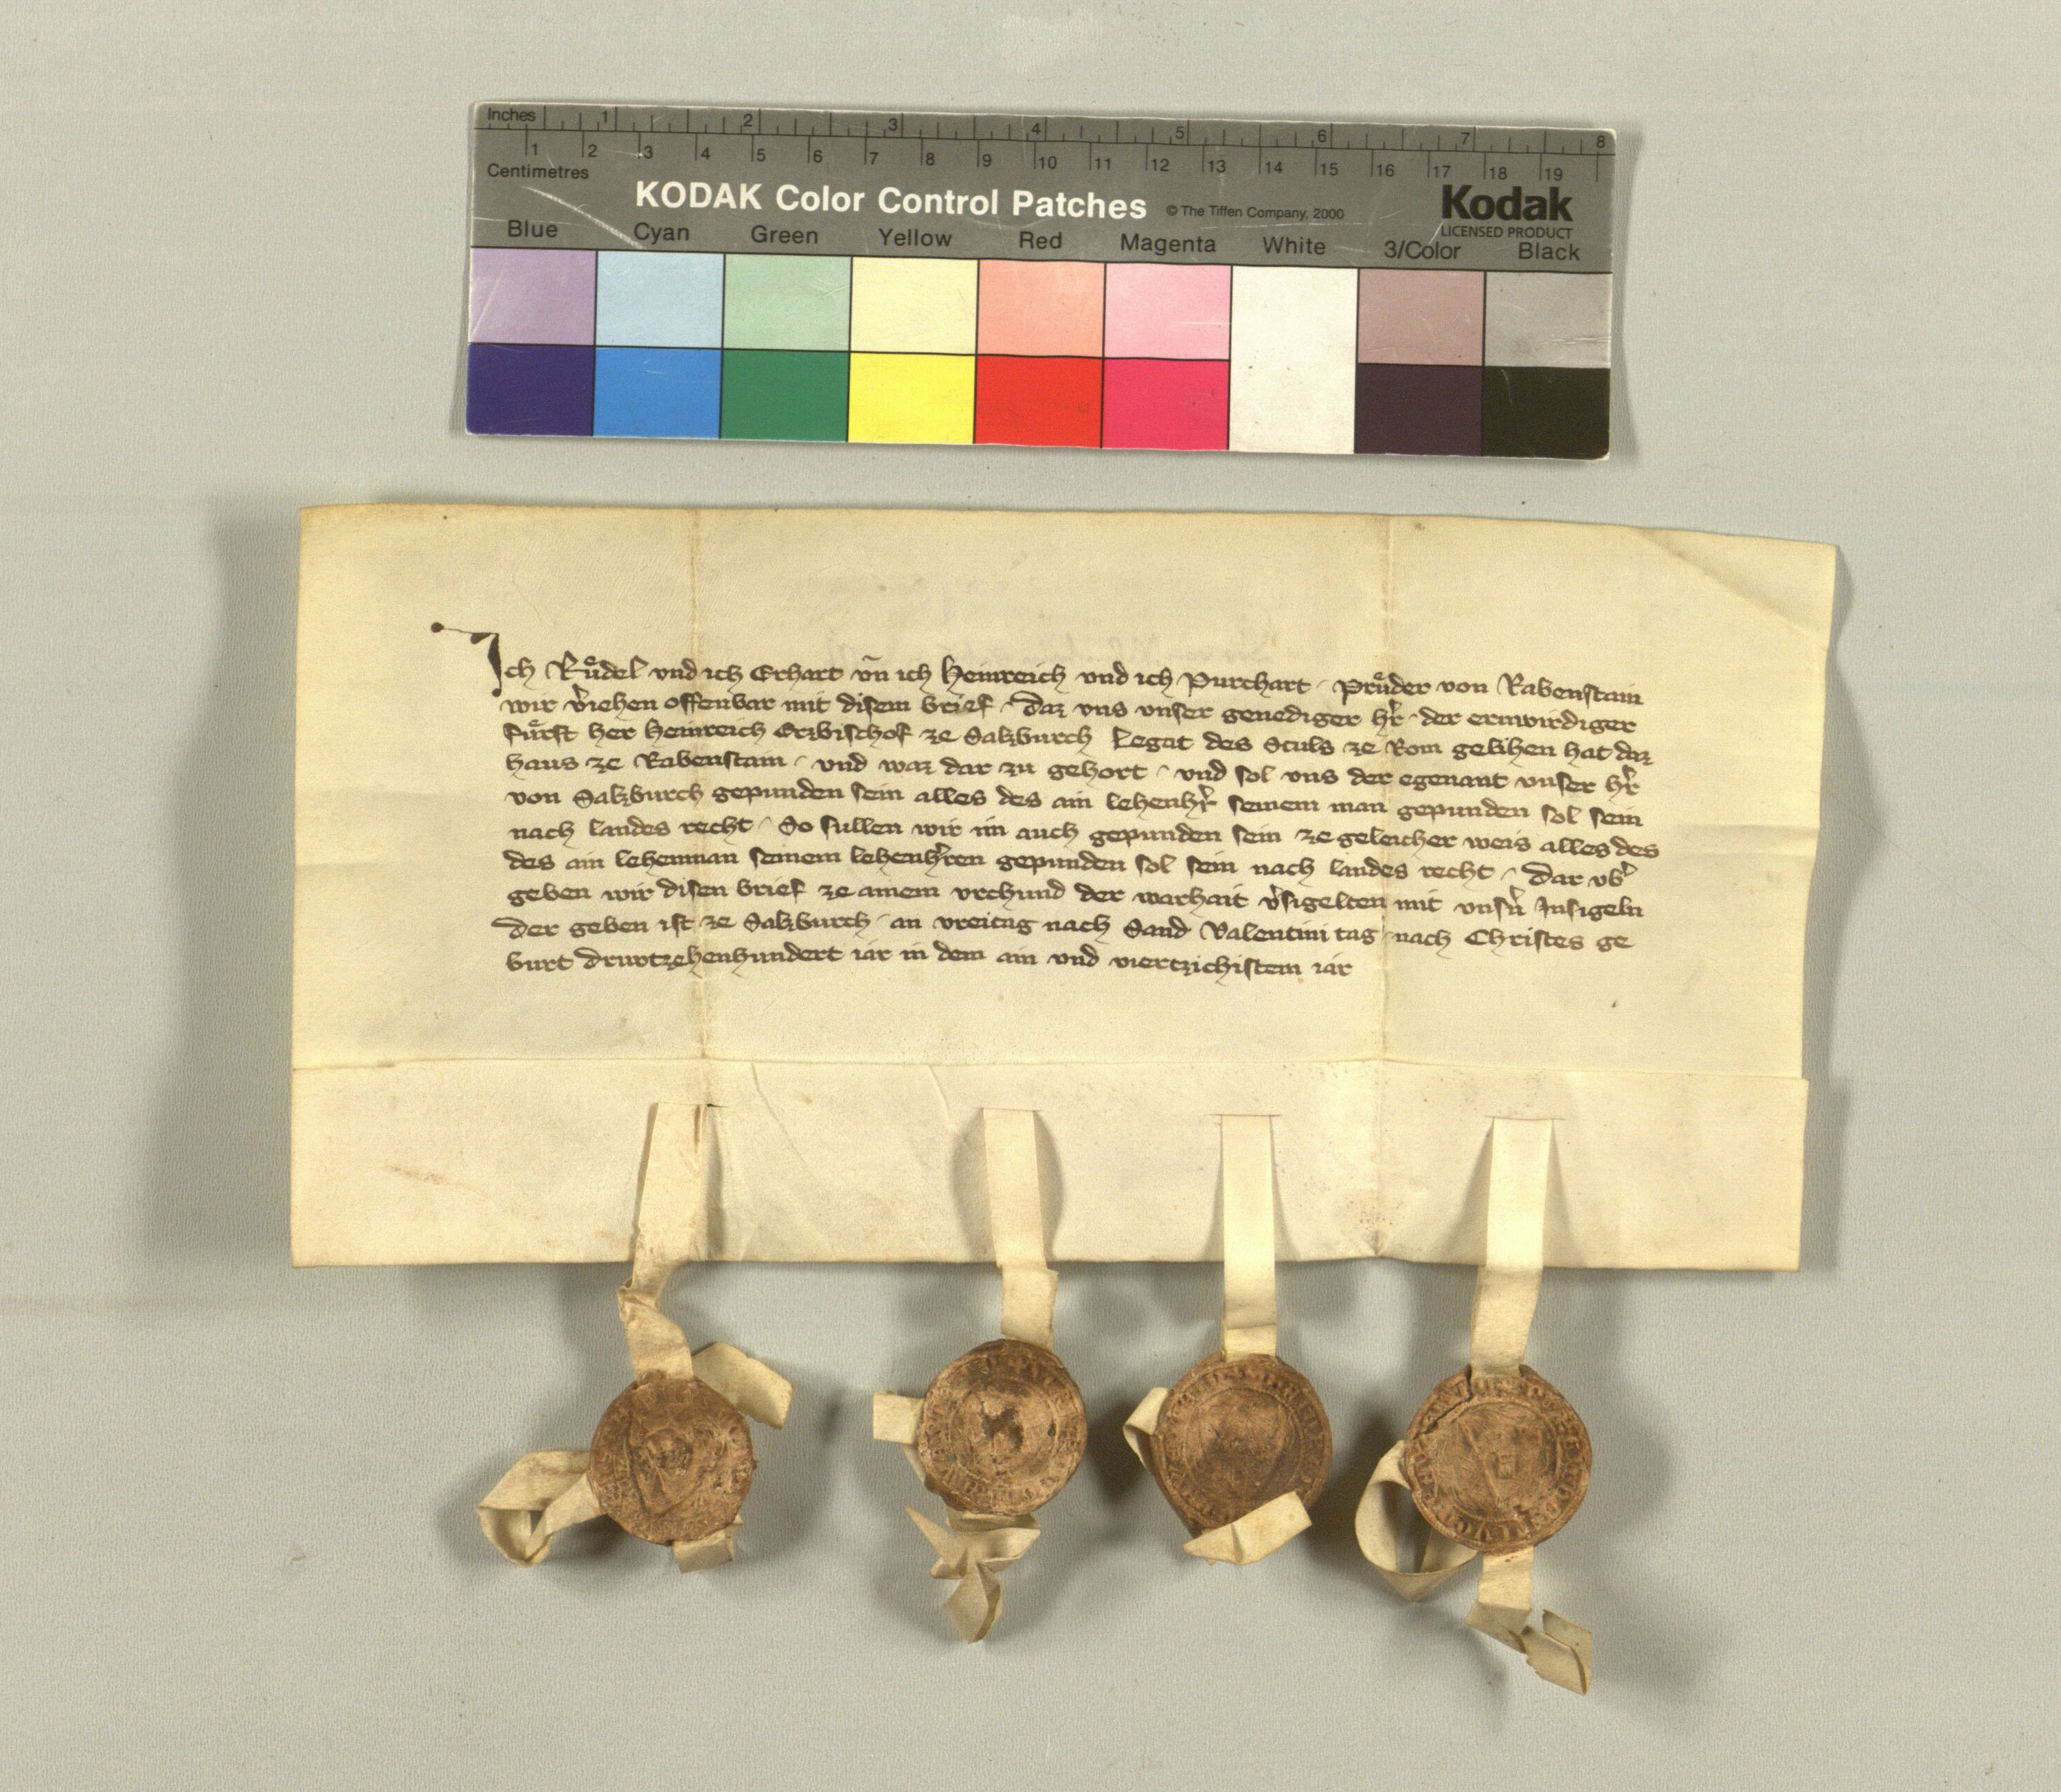 Inches 1 2 3 4 5 6 7 8
1 2 3 4 5 6 7 8 9 10 11 12 13 14 15 16 17 18 19
Centimetres
KODAK Color Control Patches © The Tiffen Company, 2000 Kodak
LICENSED PRODUCT
Blue Cyan Green Yellow Red Magenta White 3/Color Black
Ich Ruͤdel vnd ich Erhart vn̄ ich Heinreich vnd ich Purchart · Pruͤder von Rabenstain
wir v̓iehen offenbar mit disem brief · daz vns vnser genediger hr̓ · der ermwirdiger
fuͤrst her Heinreich Erzbischof ze Salzburch Legat des Stuls ze Rom gelihen hat daz
haus ze Rabenstain · vnd waz dar zu gehort · vnd sol vns der egenant vnser hr̓
von Salzburch gepunden sein alles des ain lehenhr̓ seinem man gepunden sol sein
nach landes recht · So sullen wir im auch gepunden sein ze geleicher weis alles des
des ain lehenman seinem lehenhr̓ren gepunden sol sein nach landes recht · Dar vb̓
geben wir disen brief ze ainem vrchund der warhait v̓sigelten mit vnsn̓ Insigeln
Der geben ist ze Salzburch · an vreitag nach Sand Valentini tag · nach Christes ge
burt Drewtzehenhundert iar in dem ain vnd viertzichistem iar